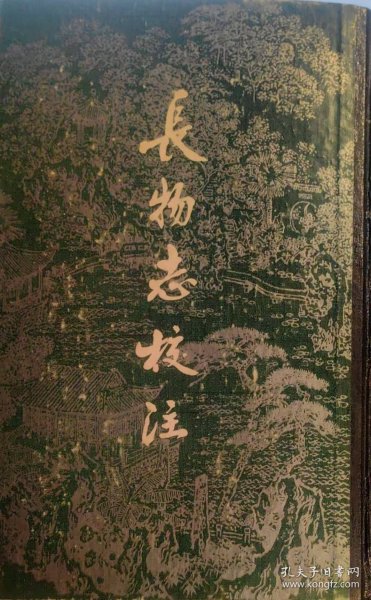 長物志校注
孔夫子旧书网
www.kongfz.com